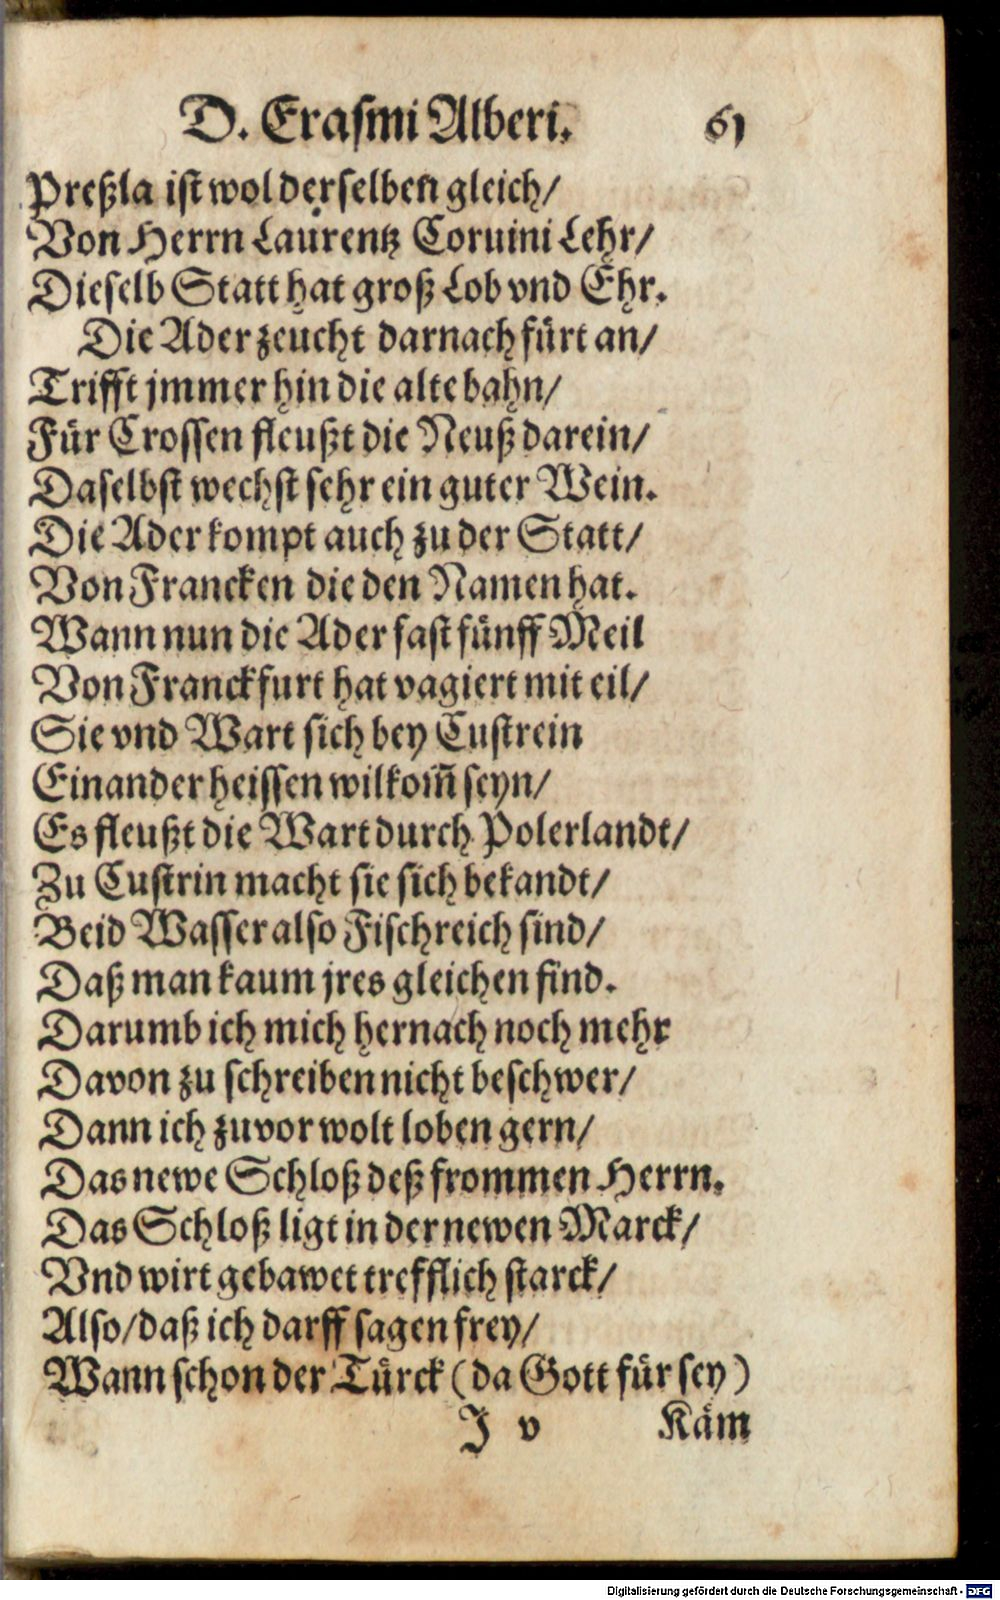 D. Erasmi Alberi. 61
Preßla ist wol derselben gleich/
Von Herrn Laurentz Coruini Lehr/
Dieselb Statt hat groß Lob vnd Ehr.
Die Ader zeucht darnach fürt an/
Trifft jmmer hin die alte bahn/
Für Crossen fleußt die Neuß darein/
Daselbst wechst sehr ein guter Wein.
Die Ader kompt auch zu der Statt/
Von Francken die den Namen hat.
Wann nun die Ader fast fünff Meil
Von Franckfurt hat vagiert mit eil/
Sie vnd Wart sich bey Custrein
Einander heissen wilkom̃ seyn/
Es fleußt die Wart durch Polerlandt/
Zu Custrin macht sie sich bekandt/
Beid Wasser also Fischreich sind/
Daß man kaum jres gleichen find.
Darumb ich mich hernach noch mehr
Davon zu schreiben nicht beschwer/
Dann ich zuvor wolt loben gern/
Das newe Schloß deß frommen Herrn.
Das Schloß ligt in der newen Marck/
Vnd wirt gebawet trefflich starck/
Also/daß ich darff sagen frey/
Wann schon der Türck (da Gott für sey)
J v Käm
Digitalisierung gefördert durch die Deutsche Forschungsgemeinschaft - DFG